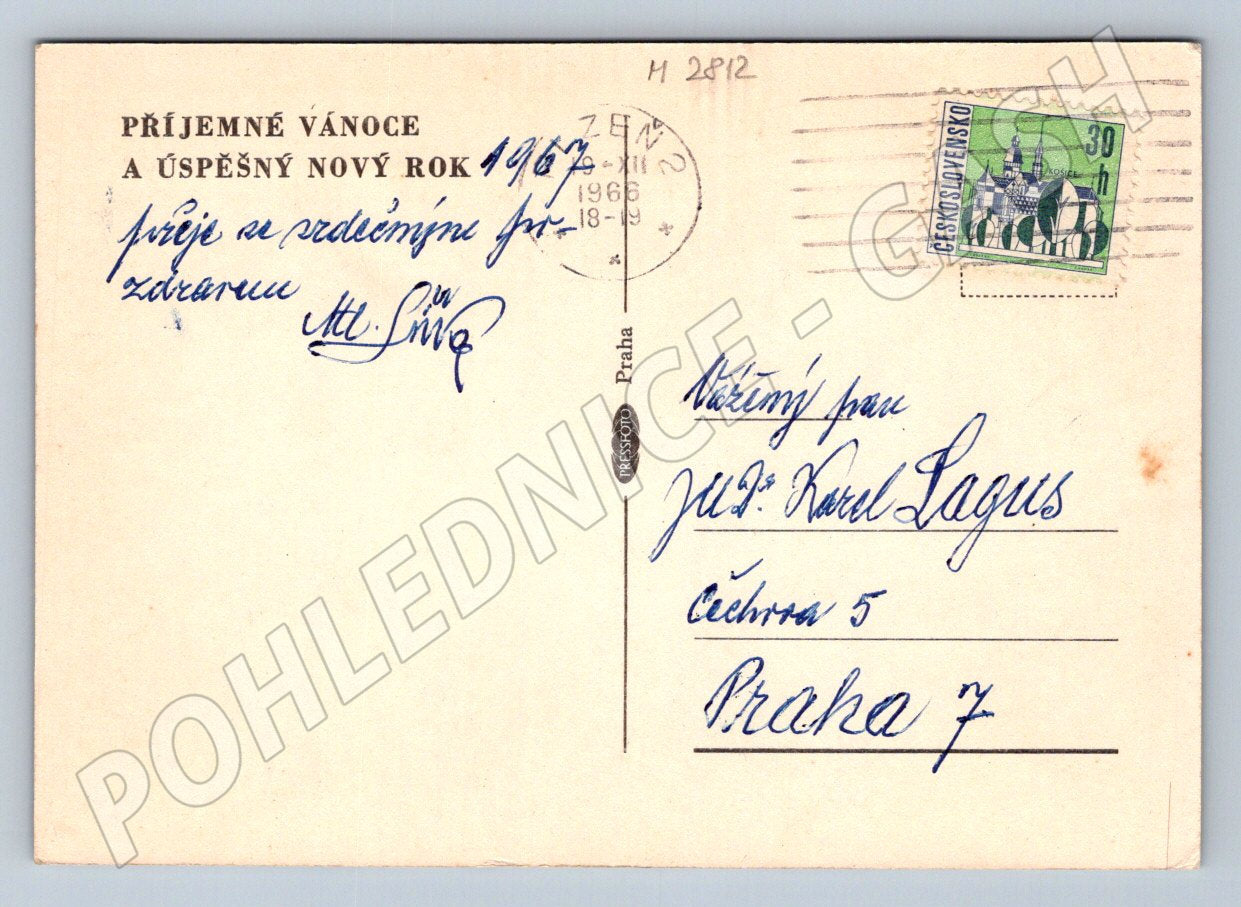 M 2812
PŘÍJEMNÉ VÁNOCE
A ÚSPĚŠNÝ NOVÝ ROK 1967
přeje se srdečným po-
zdravem
ZEŇ 2
9-XII
1966
18-19
ČESKOSLOVENSKO
30 h
KOŠICE
Praha
PRESSFOTO
Vážený pan
JUDr. Karel Lagus
Čechova 5
Praha 7
POHLEDNICE - G
SH